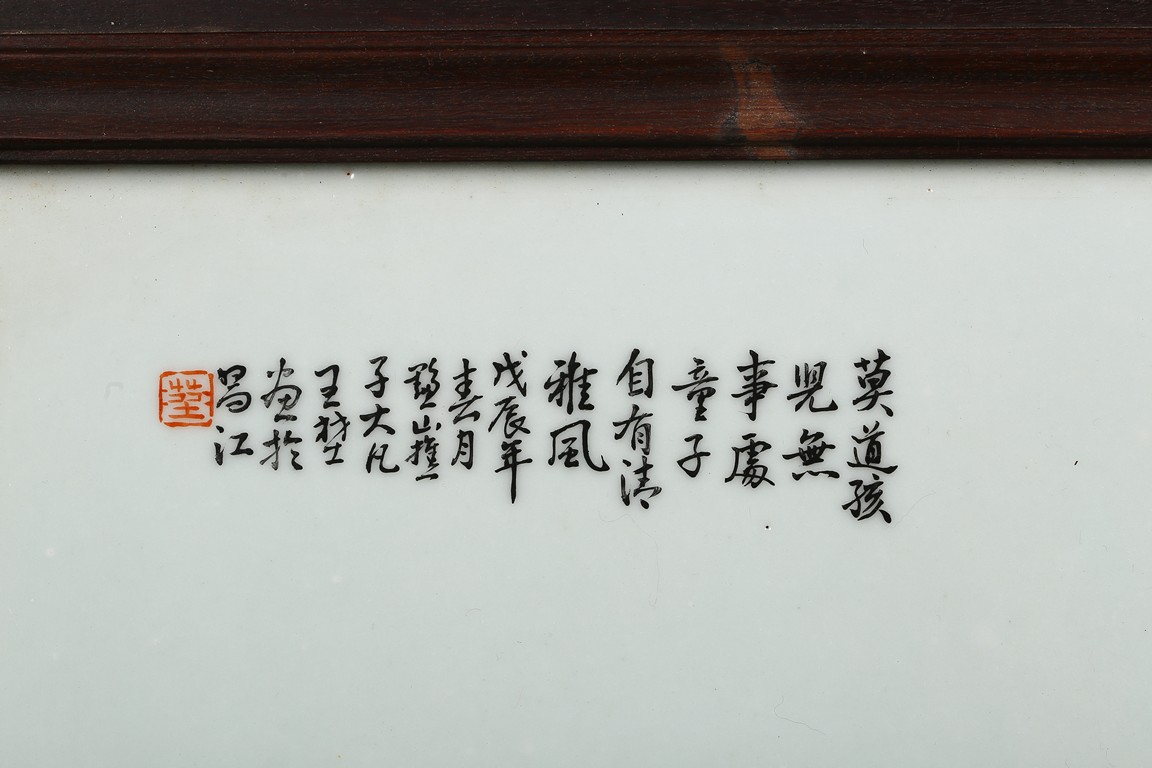 莫道孩
兒無
事處
童子
自有清
雅風
戊辰年
春月
黟山樵
子大凡
王堃
畫於
昌江